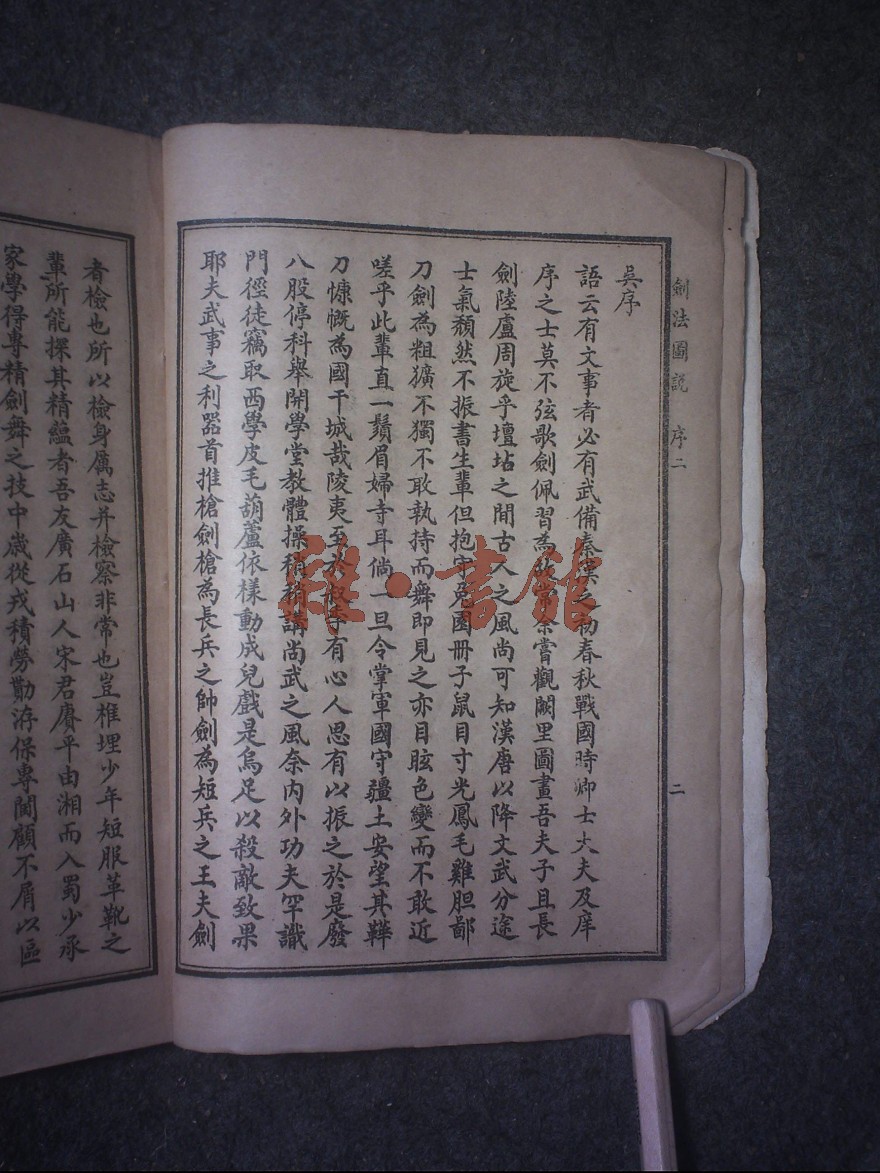 劍法圖說 序二 二
吳序
語云有文事者必有武備秦漢之初春秋戰國時卿士大夫及庠
序之士莫不弦歌劍佩習為故常余嘗觀闕里圖畫吾夫子且長
劍陸盧周旋乎壇坫之間古人之風尚可知漢唐以降文武分途
士氣頹然不振書生輩但抱守兔園冊子鼠目寸光鳳毛雞胆鄙
刀劍為粗獷不獨不敢執持而舞即見之亦目眩色變而不敢近
嗟乎此輩直一鬚眉婦寺耳倘一旦令掌軍國守疆土安望其韡
刀慷慨為國干城哉陵夷至於叔季有心人思有以振之於是廢
八股停科舉開學堂教體操稍稍講尚武之風奈內外功夫罕識
門徑徒竊取西學皮毛葫蘆依樣動成兒戲是烏足以殺敵致果
耶夫武事之利器首推槍劍槍為長兵之帥劍為短兵之王夫劍
者檢也所以檢身厲志并檢察非常也豈椎埋少年短服革靴之
輩所能探其精蘊者吾友廣石山人宋君賡平由湘而入蜀少承
家學得專精劍舞之技中歲從戎積勞勩洊保專閫顧不屑以區
稚·書館